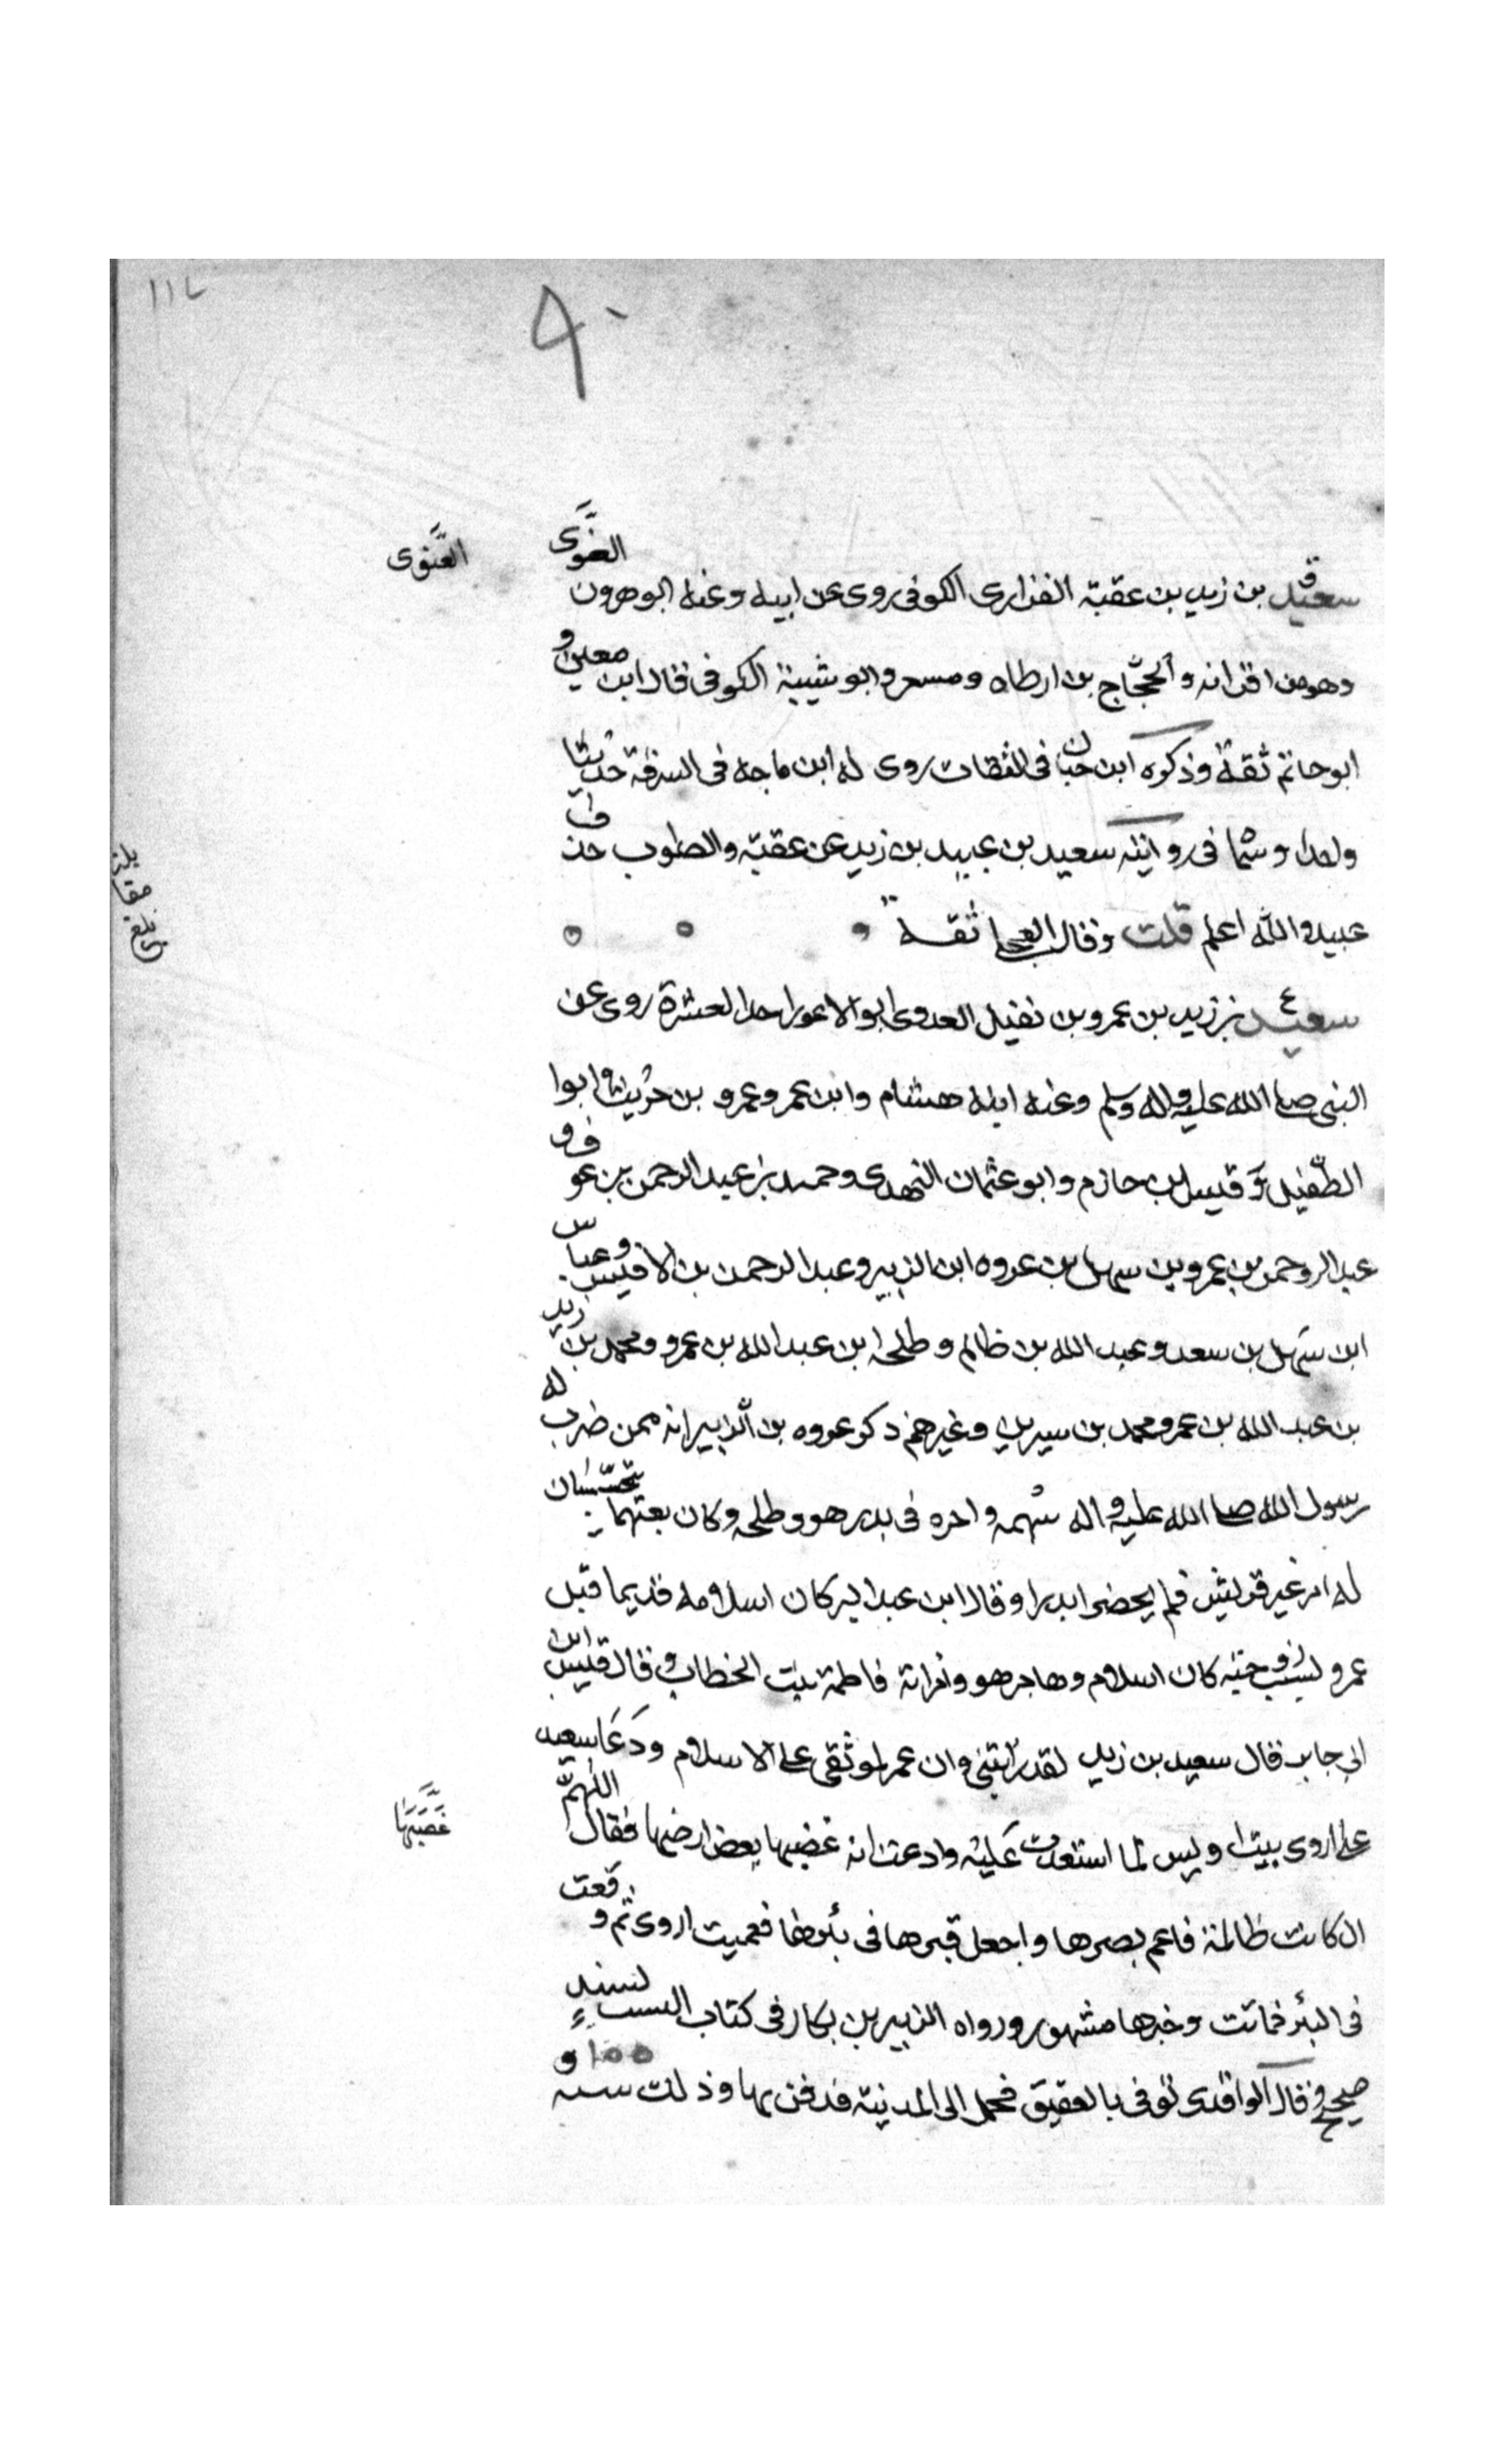 سعيد بن زيد بن عقبة الفزارى الكوفى روى عن ابيه وعنه ابو هرون الغنوى
الغنوى
وهو من اقرانه والحجاج بن ارطاه ومسعر وابو شيبة الكوفى قال ابن معين و
ابو حاتم ثقة وذكره ابن حبان فى الثقات روى له ابن ماجه فى السرقة حديثا
واحدا وسما فى روايته سعيد بن عبيد بن زيد عن عقبة والصواب حذف
عبيد والله اعلم قلت وقال العجلى ثقة
سعيد بن زيد بن عمرو بن نفيل العدوى ابو الاعور احد العشرة روى عن
النبى صلى الله عليه واله وسلم وعنه ابنه هشام وابن عمر وعمرو بن حريث وابوا
الطفيل وقيس بن حازم وابو عثمان النهدى وحميد بن عبد الرحمن بن عوف و
عبد الرحمن بن عمرو بن سهل بن عروه ابن الزبير وعبد الرحمن بن الاخنيس وعباس
ابن سهل بن سعد وعبد الله بن ظالم وطلحه ابن عبد الله بن عمرو ومحمد بن زيد
بن عبد الله بن عمر ومحمد بن سيرين وغيرهم ذكر عروه بن الزبير انه ممن ضرب له
رسول الله صلى الله عليه واله سهمه واجره فى بدر هو وطلحه وكان بعثهما يتحسسان
له امر غير قريش فلم يحضرا بدرا وقال ابن عبد البر كان اسلامه قديما قبل
عمرو بسبب زوجته كان اسلام وهاجر هو وامراته فاطمة بنت الخطاب وقال قيس ابن
ابى جابر قال سعيد بن زيد لقد رايتنى وان عمر لموثقى على الاسلام ودعا سعيد
على اروى بيت اويس لما استعدت عليه وادعت انه غصبها بعض ارضها فقال اللهم
غصبها
ان كانت ظالمة فاعم بصرها واجعل قبرها فى بئرها فعميت اروى ثم وقعت
فى البئر فماتت وخبرها مشهور ورواه الزبير بن بكار فى كتاب النسب بسند
صحيح وقال الواقدى توفى بالعقيق فحمل الى المدينة فدفن بها وذلك سنه